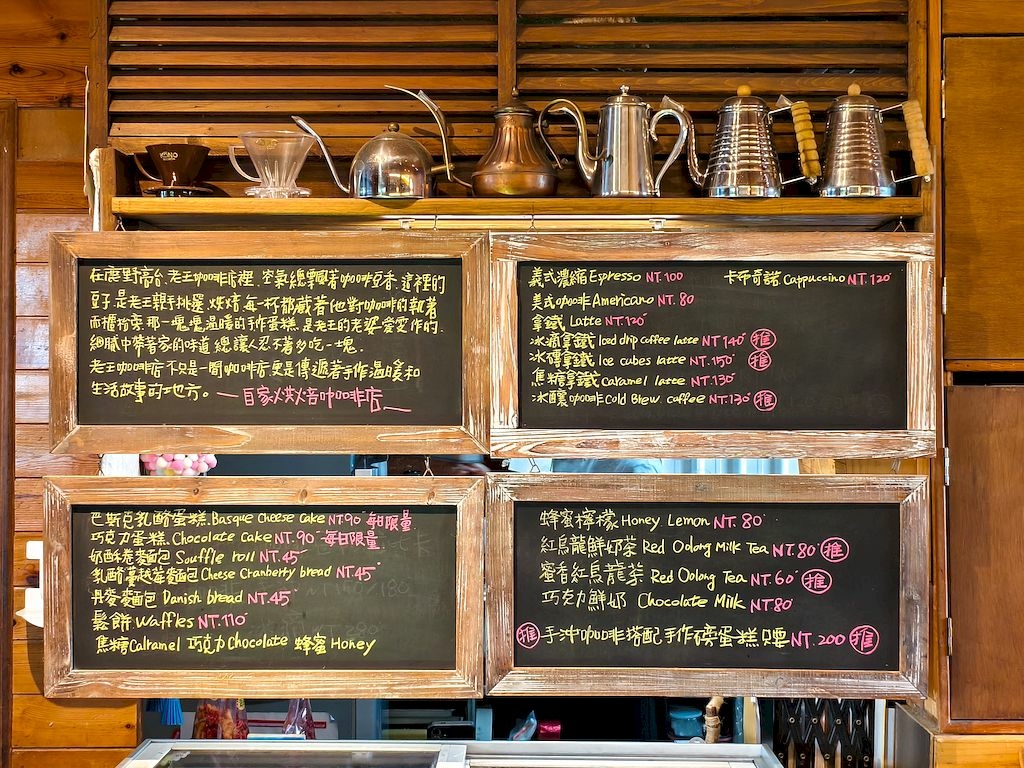 KONO
在鹿野高台.老王咖啡店裡.空氣總飄著咖啡豆香.這裡的
豆子.是老王親手挑選.烘焙.每一杯都藏著他對咖啡的執著
而櫃檯旁.那一塊塊溫暖的手作蛋糕.是老王的老婆愛愛作的.
細膩中帶著家的味道.總讓人忍不著多吃一塊.
老王咖啡店不只是一間咖啡店更是傳遞著手作溫暖和
生活故事的一地方。—自家烘焙咖啡店—
義式濃縮 Espresso NT.100
卡布奇諾 Cappuccino NT.120
美式咖啡 Americano NT.80
拿鐵 Latte NT.120
冰滴拿鐵 Iced drip coffee latte NT140 推
冰磚拿鐵 Ice cubes latte NT.150 推
焦糖拿鐵 Caramel latte NT.130
冰釀咖啡 Cold Brew coffee NT.130 推
巴斯克乳酪蛋糕.Basque Cheese Cake NT.90 每日限量
巧克力蛋糕.Chocolate Cake NT.90 每日限量
奶酥卷麵包 Souffle roll NT.45
乳酪蔓越莓麵包 Cheese Cranberry bread NT.45
丹麥麵包 Danish bread NT.45
鬆餅 Waffles NT.110
焦糖 Calramel 巧克力 Chocolate 蜂蜜 Honey
蜂蜜檸檬 Honey Lemon NT.80
紅烏龍鮮奶茶 Red Oolong Milk Tea NT.80 推
蜜香紅烏龍茶 Red Oolong Tea NT.60 推
巧克力鮮奶 Chocolate Milk NT80
推 手沖咖啡搭配手作磅蛋糕只要NT.200 推